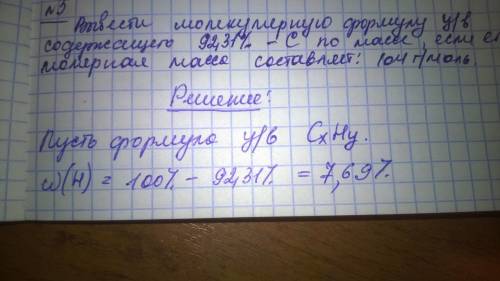 №3 Вывести молекулярную формулу у/в
содержащего 92,31% - С по массе, если её
молярная масса составляет: 104 г/моль
Решение:
Пусть формула у/в CxHy.
ω(H) = 100% - 92,31% = 7,69%.